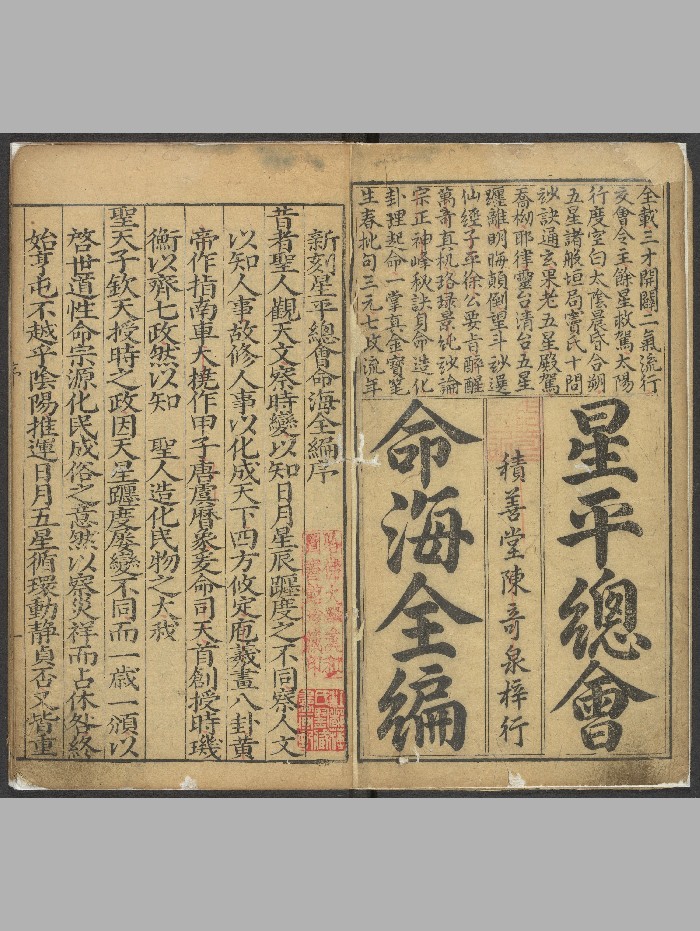 全載三才開闢二氣流行
交會令主餘星救駕太陽
行度室臼太陰晨昏合朔
五星諸般垣局賓氏十問
玅訣通玄果老五星殿駕
喬拗耶律靈台清台五星
躔離明晦顛倒望斗玅選
仙經子平徐公要肯醉醒
萬奇真机珞琭景純玅論
宗正神峰秋訣貝命造化
卦理起命一掌真金寶篗
生春批句三元七政流年
星平總會
積善堂陳奇泉梓行
命海全編
新刻星平總會命海全編序
昔者聖人觀天文察時變以知日月星辰躔度之不同察人文
以知人事故修人事以化成天下四方攸定庖羲畫八卦黃
帝作指南車大撓作甲子唐虞曆象爰命司天首創授時璣
衡以齊七政然以知 聖人造化民物之大哉
聖天子欽天授時之政因天星躔度屢變不同而一歲一頒以
啓世道性命宗源化民成俗之意然以察災祥而占休咎終
始亨屯不越乎陰陽推運日月五星循環動静貞否又皆重